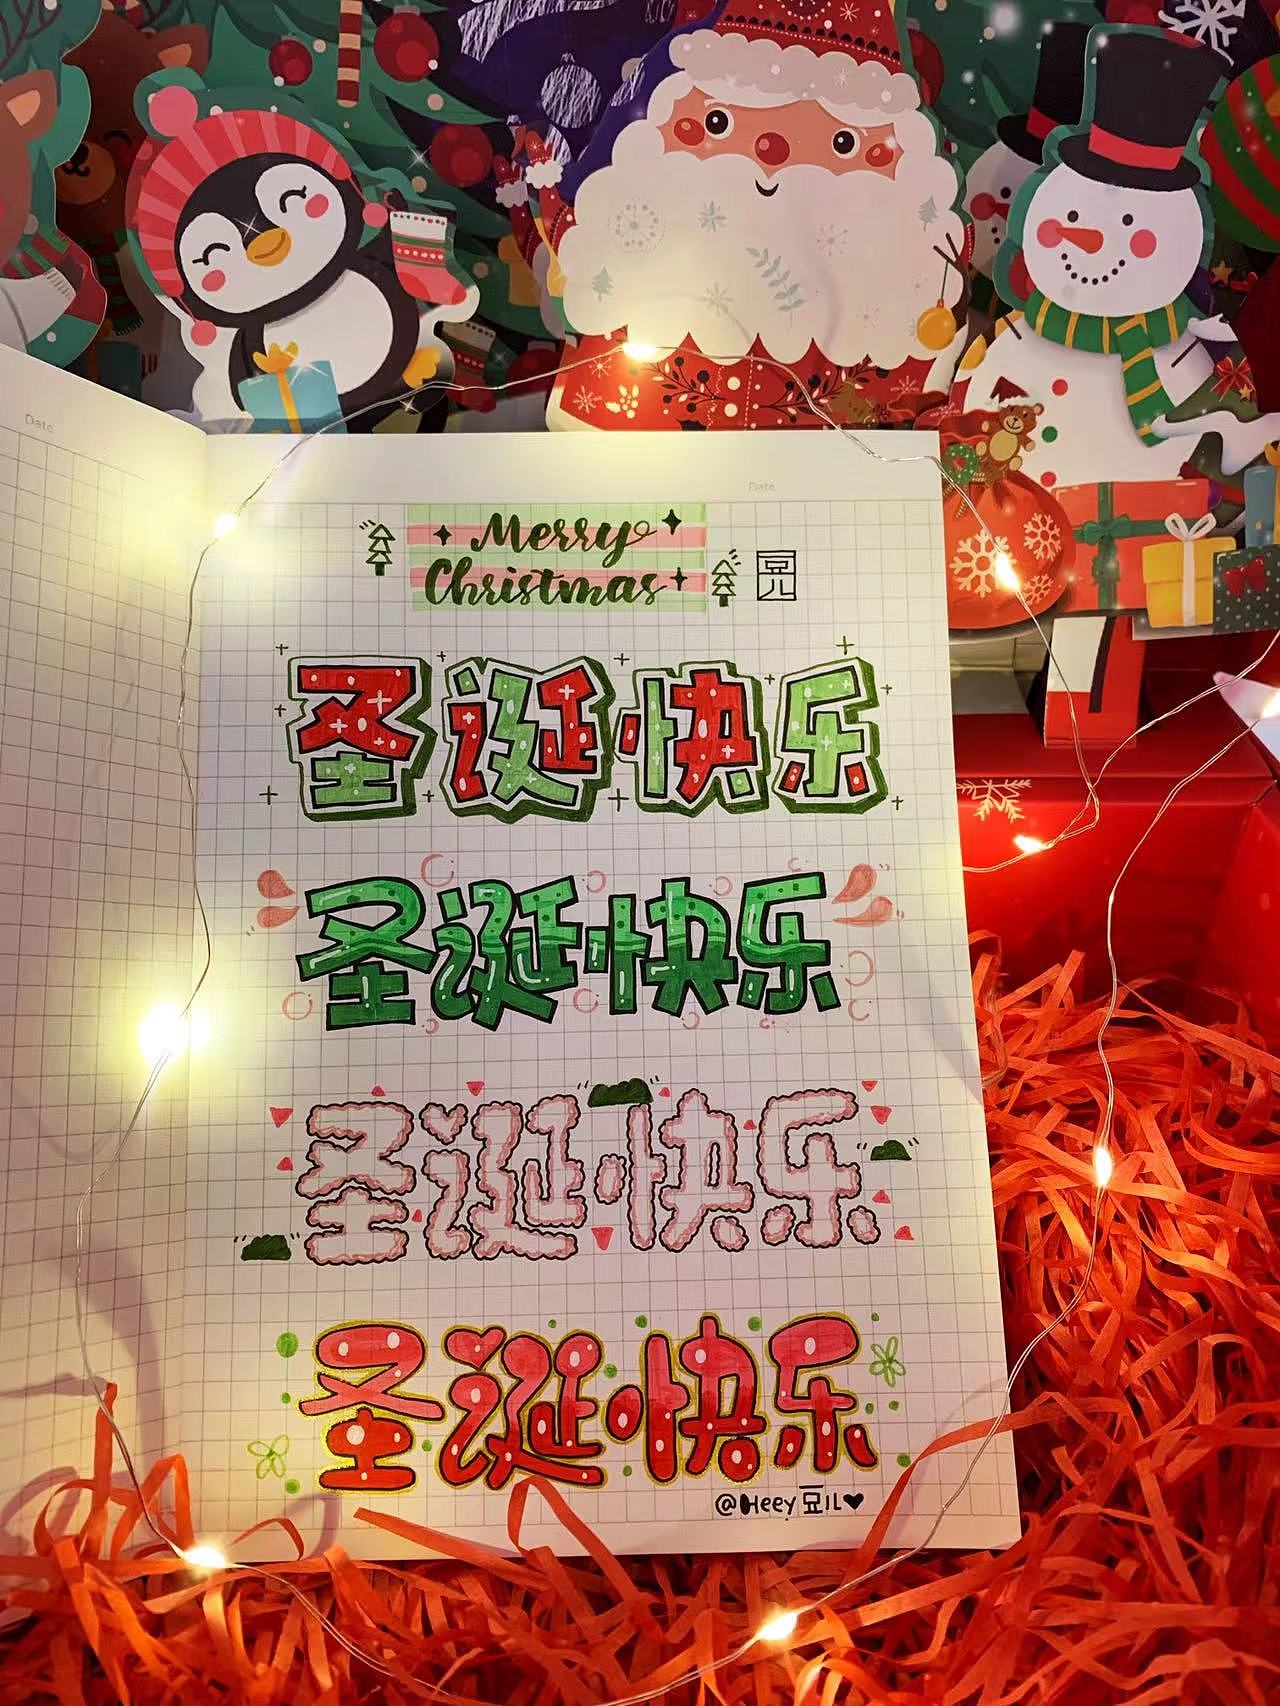 Date
Date
Merry
Christmas
豆儿
圣诞快乐
圣诞快乐
圣诞快乐
圣诞快乐
@Heey豆儿